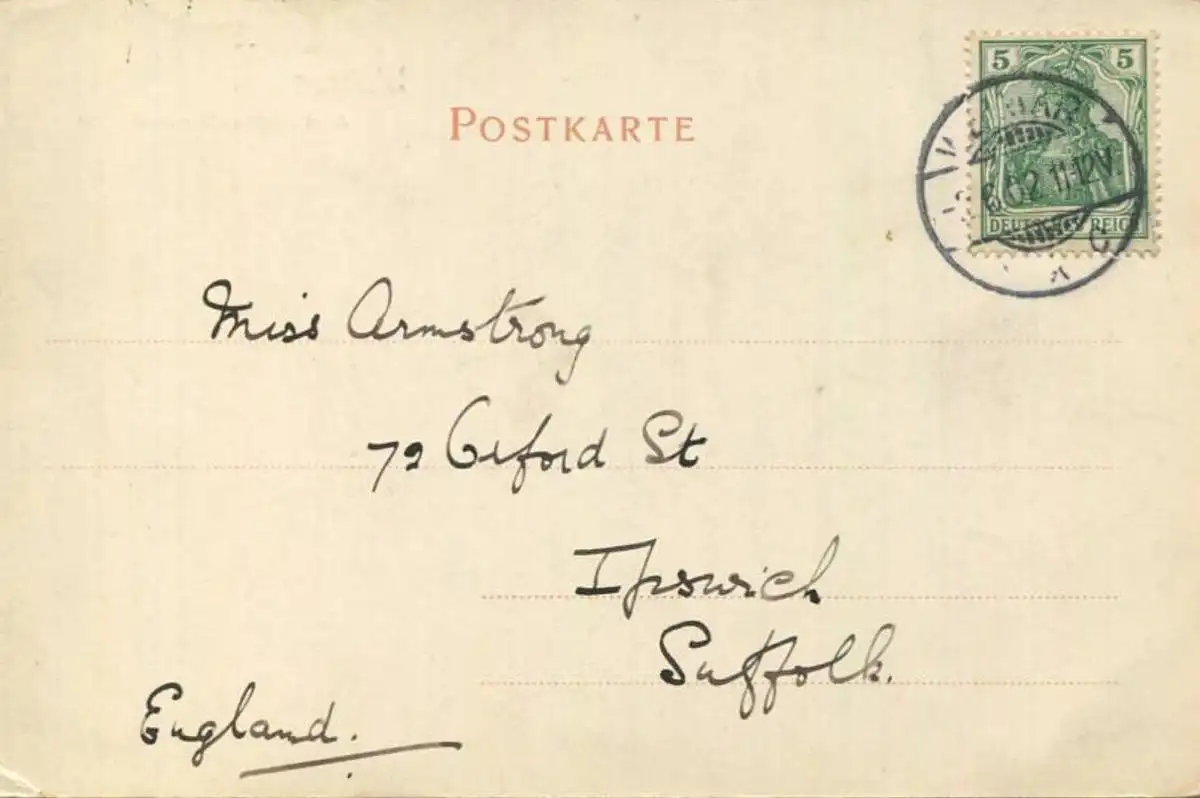 5 5
POSTKARTE
6.02 11-12V.
DEUTSCHES REICH
Miss Armstrong
72 Orford St
Ipswich
Suffolk.
England.